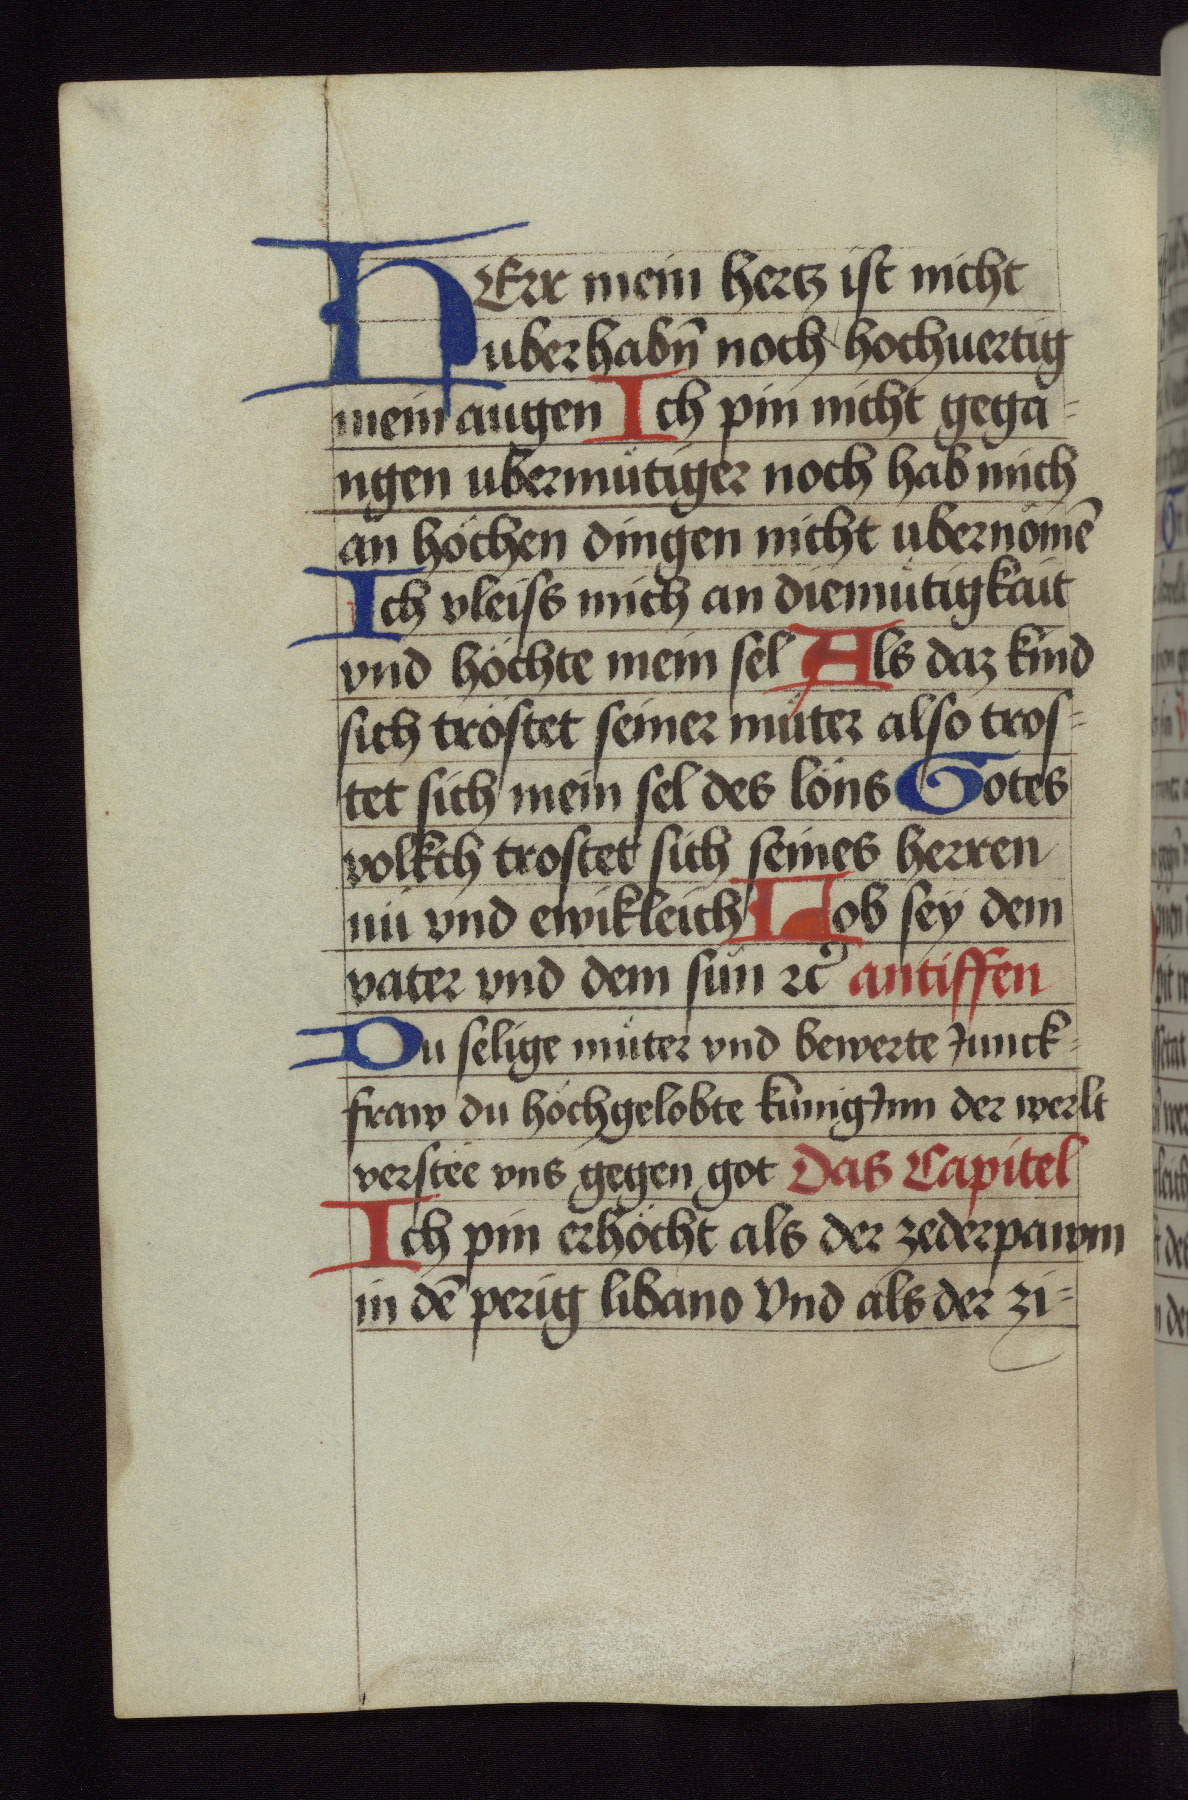 HErr mein hertz ist nicht
uberhabn̄ noch hochuertig
mein augen Ich pin nicht gega-
ngen ubermuͤtiger noch hab mich
an höchen dingen nicht ubernömē
Ich vleiss mich an diemuͤtigkait
vnd höchte mein sel Als daz kind
sich tröstet seiner muͤter also tros-
tet sich mein sel des löns Gotes
volkch trostet sich seines herren
nü vnd ewikleich Lob sey dem
vater vnd dem sün ꝛc̄ antiffen
Du selige muͤter vnd bewerte Junck-
fraw du höchgelobte künigJnn der werlt
verstëe vns gegen got Das Capitel
Ich pin erhöcht als der zederpawm
in dē perig libano Vnd als der zi-